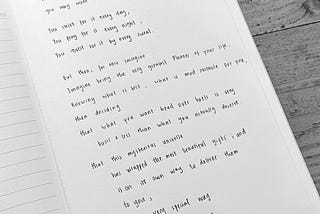 you may want
You thirst for it every day,
You pray for it every night,
You sweat for it by every sweat.
But then, for once imagine
Imagine being the very greatest Planner of your life,
Knowing what is best, what is most suitable for you,
then deciding
that what you want head over heels is very
less than what you actually deserve
that this mysterious universe
has wrapped the most beautiful gifts, and
is on its own way to deliver them
to you,
very special way